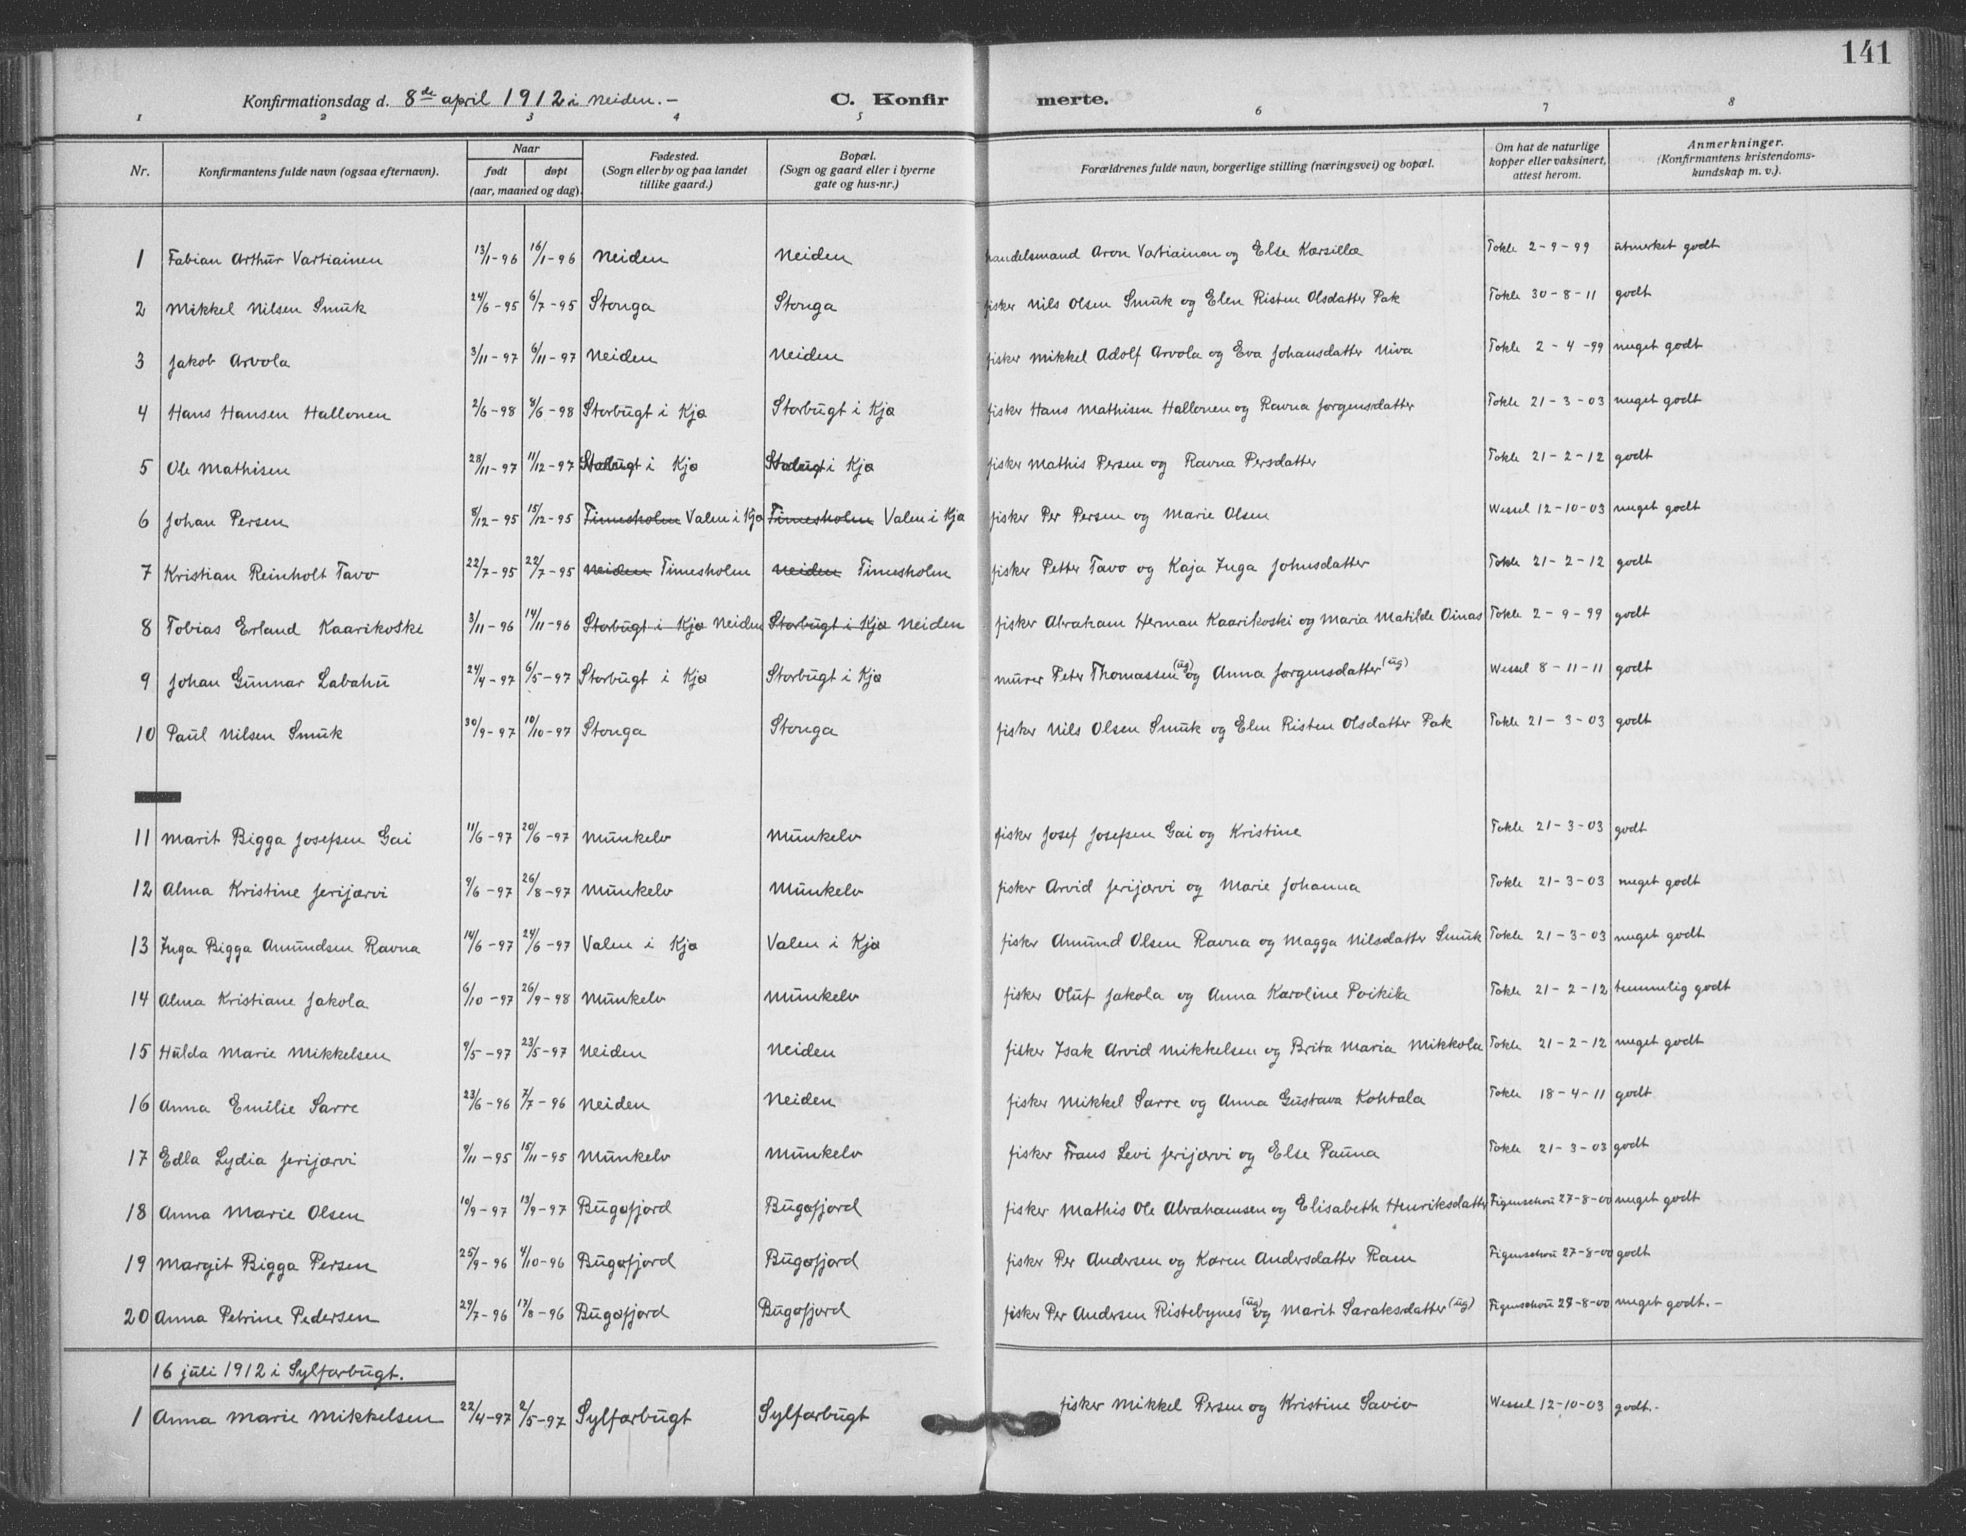 141
Konfirmationsdag d. 8de april 1912 i Neiden.- C. Konfirmerte.
1 2 3 4 5 6 7 8
Nr. Konfirmantens fulde navn (ogsaa efternavn). Naar født døpt (aar, maaned og dag). Fødested. (Sogn eller by og paa landet tillike gaard.) Bopæl. (Sogn og gaard eller i byerne gate og hus-nr.) Forældrenes fulde navn, borgerlige stilling (næringsvei) og bopæl. Om hat de naturlige kopper eller vaksinert, attest herom. Anmerkninger. (Konfirmantens kristendomskundskap m. v.).
1 Fabian Arthur Vartiainen 13/1-96 16/1-96 Neiden Neiden handelsmand Aron Vartiainen og Else Karsillæ Tokle 2-9-99 utmerket godt
2 Mikkel Nilsen Smuk 24/6-95 6/7-95 Stonga Stonga fisker Nils Olsen Smuk og Elen Risten Olsdatter Pak Tokle 30-8-11 godt
3 Jakob Arvola 3/11-97 6/11-97 Neiden Neiden fisker Mikkel Adolf Arvola og Eva Johansdatter Niva Tokle 2-4-99 meget godt
4 Hans Hansen Hallonen 2/6-98 8/6-98 Storbugt i Kjø Storbugt i Kjø fisker Hans Mathisen Hallonen og Ravna Jørgensdatter Tokle 21-3-03 meget godt
5 Ole Mathisen 28/11-97 11/12-97 i Kjø i Kjø fisker Mathis Persen og Ravna Persdatter Tokle 21-2-12 godt
6 Johan Persen 8/12-95 15/12-95 Timesholm Valen i Kjø Timesholm Valen i Kjø fisker Per Persen og Marie Olsen Wessel 12-10-03 meget godt
7 Kristian Reinholt Tavo 22/7-95 22/7-95 Neiden Timesholm Neiden Timesholm fisker Petter Tavo og Kaja Inga Johnsdatter Tokle 21-2-12 godt
8 Tobias Erland Kaarikoski 3/11-96 14/11-96 Storbugt i Kjø Neiden Storbugt i Kjø Neiden fisker Abraham Herman Kaarikoski og Maria Matilde Oinas Tokle 2-9-99 godt
9 Johan Gunnar Labahu 24/4-97 6/5-97 Storbugt i Kjø Storbugt i Kjø murer Peter Thomassen (ug) og Anna Jørgensdatter (ug) Wessel 8-11-11 godt
10 Paul Nilsen Smuk 30/9-97 10/10-97 Stonga Stonga fisker Nils Olsen Smuk og Elen Risten Olsdatter Pak Tokle 21-3-03 godt
11 Marit Bigga Josefsen Gai 11/6-97 20/6-97 Munkelv Munkelv fisker Josef Josefsen Gai og Kristine Tokle 21-3-03 godt
12 Alma Kristine Jerijærvi 9/6-97 26/8-97 Munkelv Munkelv fisker Arvid Jerijærvi og Marie Johanna Tokle 21-3-03 meget godt
13 Inga Bigga Amundsen Ravna 14/6-97 24/6-97 Valen i Kjø Valen i Kjø fisker Amund Olsen Ravna og Magga Nilsdatter Smuk Tokle 21-3-03 meget godt
14 Alma Kristiane Jakola 6/10-97 26/9-98 Munkelv Munkelv fisker Oluf Jakola og Anna Karoline Poikila Tokle 21-2-12 temmelig godt
15 Hulda Marie Mikkelsen 9/5-97 23/5-97 Neiden Neiden fisker Isak Arvid Mikkelsen og Brita Maria Mikkola Tokle 21-2-12 meget godt
16 Anna Emilie Sarre 23/6-96 7/7-96 Neiden Neiden fisker Mikkel Sarre og Anna Gustava Kohtala Tokle 18-4-11 godt
17 Edla Lydia Jerijærvi 9/11-95 15/11-95 Munkelv Munkelv fisker Frans Levi Jerijærvi og Else Pauna Tokle 21-3-03 godt
18 Anna Marie Olsen 10/9-97 13/9-97 Bugøfjord Bugøfjord fisker Mathis Ole Abrahamsen og Elisabeth Henriksdatter Figenschou 27-8-00 meget godt
19 Margit Bigga Persen 25/9-96 4/10-96 Bugøfjord Bugøfjord fisker Per Andersen og Karen Andersdatter Ram Figenschou 27-8-00 godt
20 Anna Petrine Pedersen 29/7-96 17/8-96 Bugøfjord Bugøfjord fisker Per Andersen Ristebynes (ug) og Marit Saraksdatter (ug) Figenschou 27-8-00 meget godt.-
16 juli 1912 i Sylfarbugt.
1 Anna Marie Mikkelsen 22/4-97 2/5-97 Sylfarbugt Sylfarbugt fisker Mikkel Persen og Kristine Savio Wessel 12-10-03 godt.-